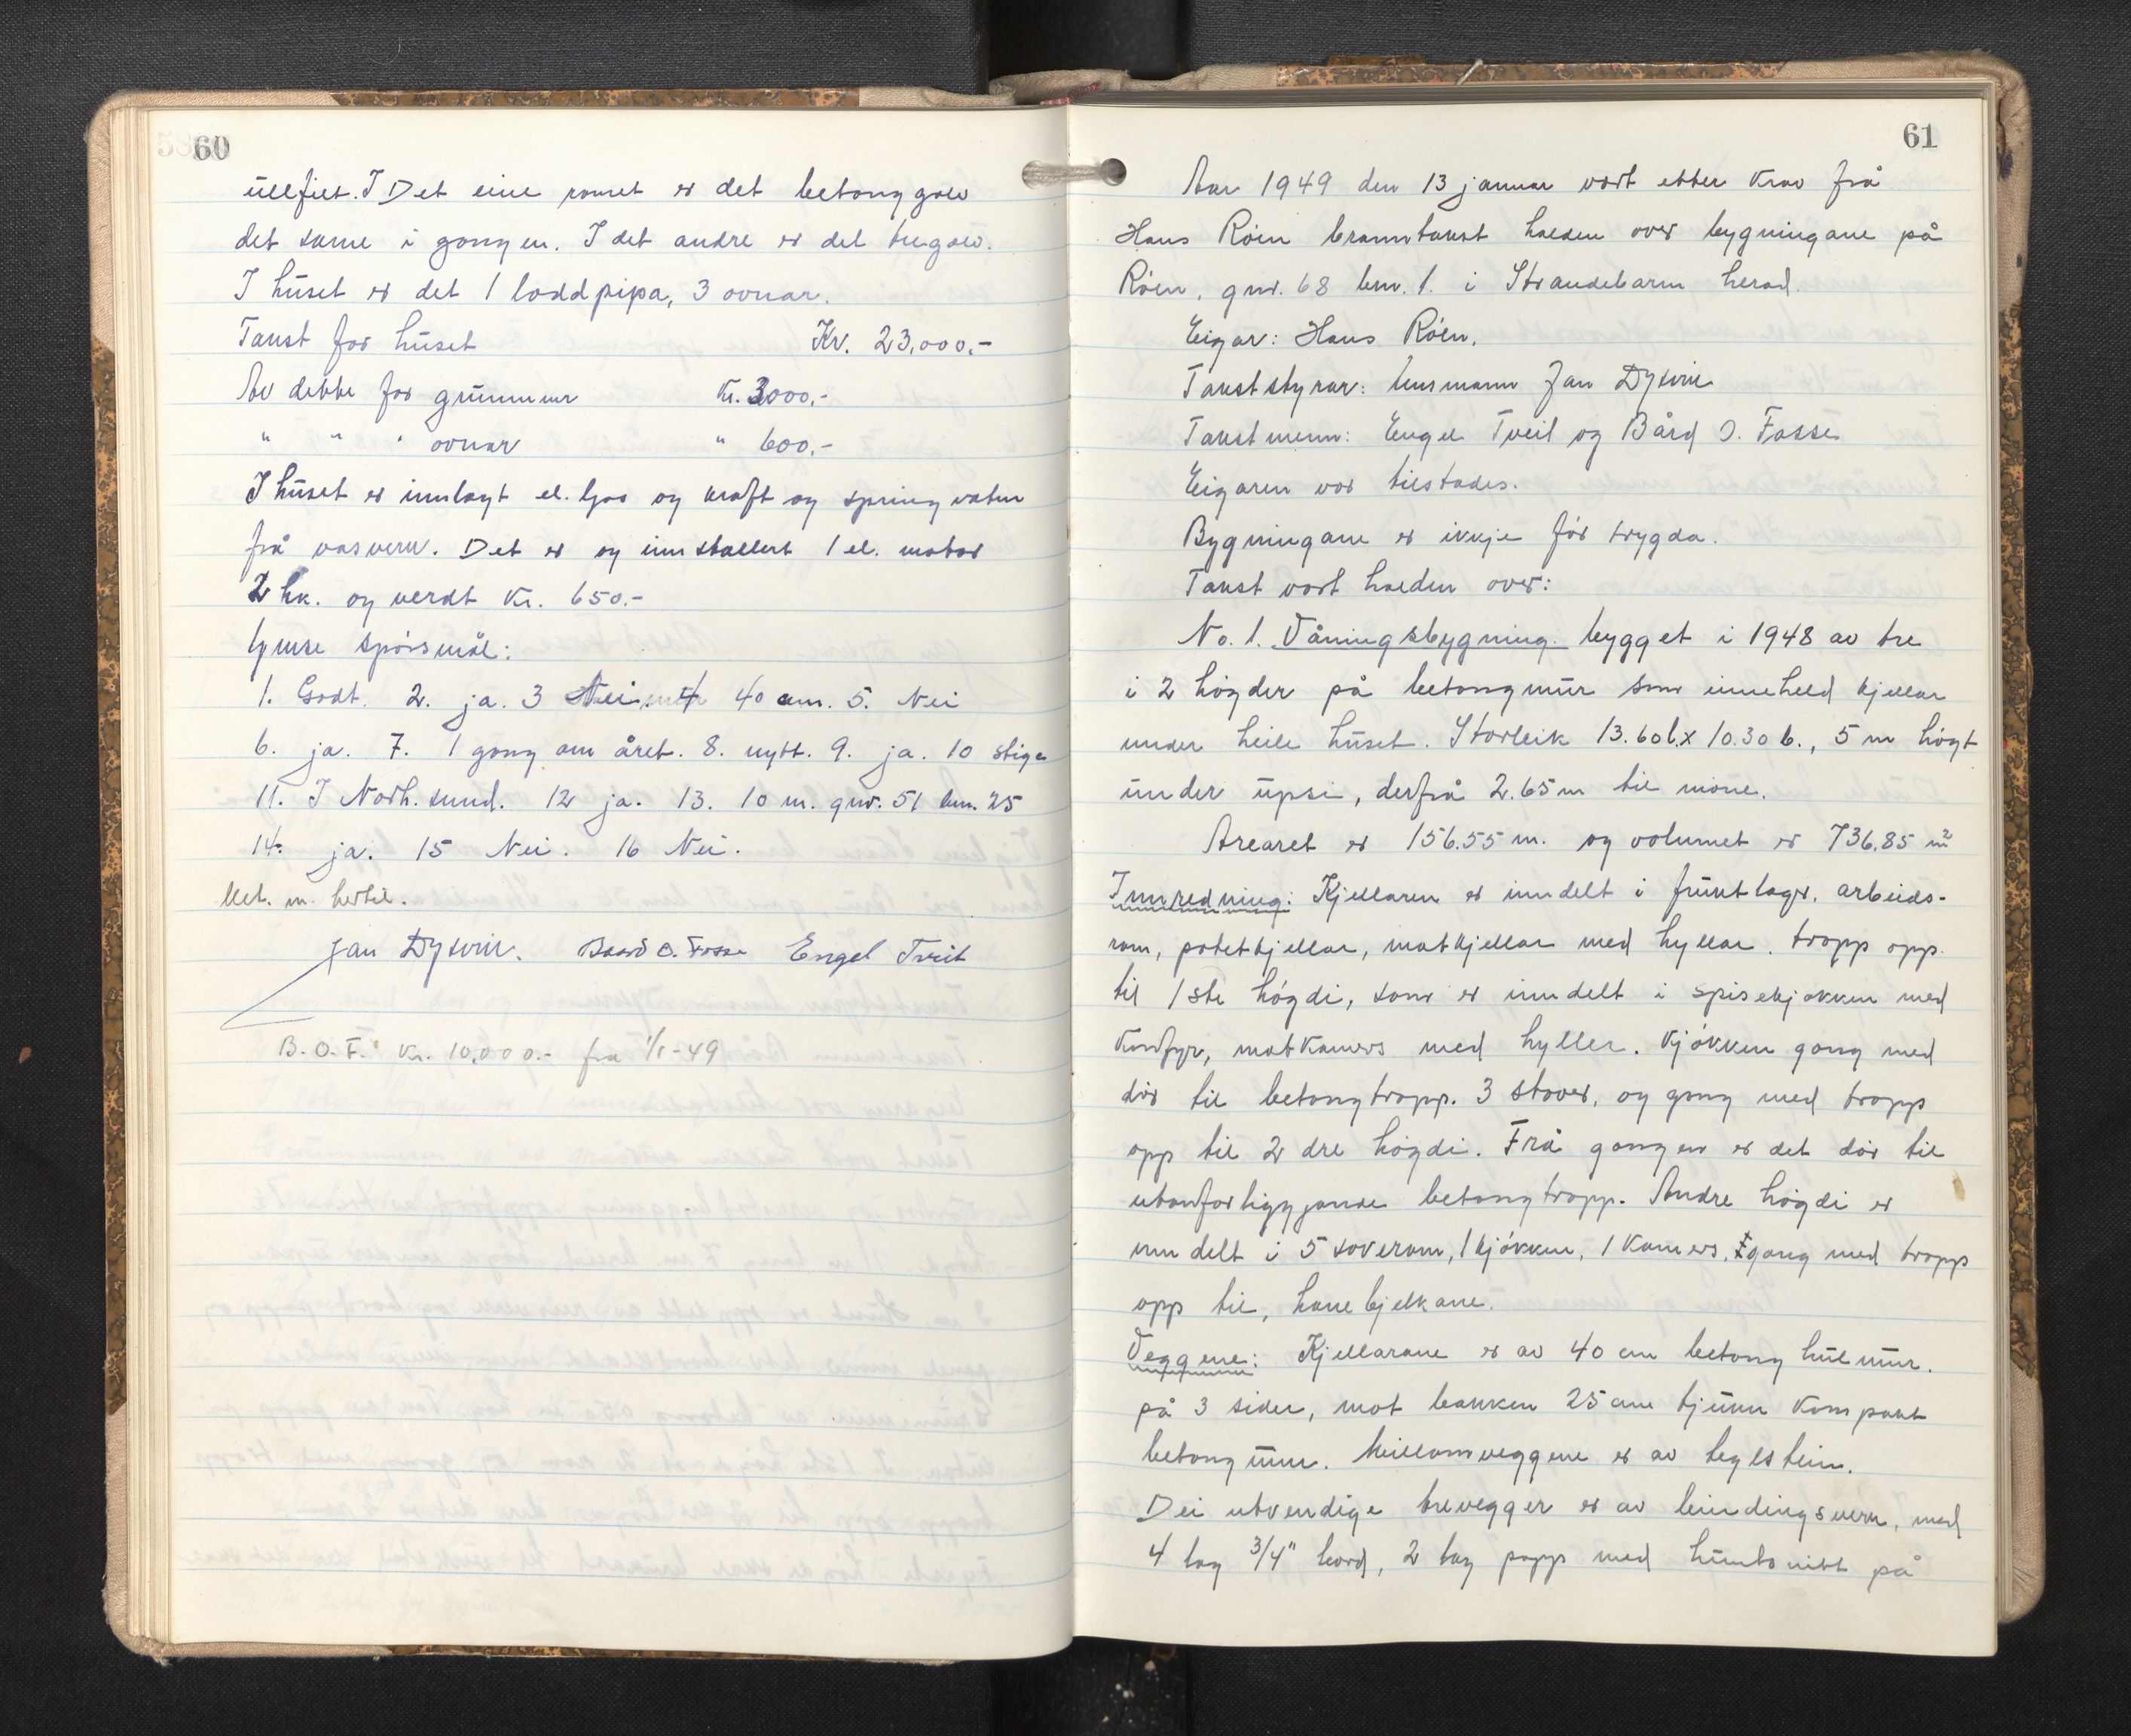 60
ullfilt. I Det eine romet er det betonggolv
det same i gongen. I det andre er det tregolv.
I huset er det 1 loddpipa, 3 ovnar.
Takst for huset Kr. 23,000.-
Av dette for grunnmur Kr. 3000.-
" " " ovnar " 600.-
I huset er innlagt el. ljos og kraft og springvatn
frå vasverk. Det er og innstallert 1 el. motor
2 hk. og verdt Kr. 650.-
Ymse spörsmål:
1. Godt. 2. ja. 3 Nei. 4 40 cm. 5. Nei
6. ja. 7. 1 gong om året. 8. nytt. 9. ja. 10 stige
11. I Norh.sund. 12 ja. 13. 10 m. gnr. 51 bnr. 25
14. ja. 15 Nei. 16 Nei.
Utt. m. hertil.
Jan Dysvik. Baard O. Fosse Engel Tveit
B.O.F. Kr. 10,000.- fra 1/1-49
61
Aar 1949 den 13 januar vart etter krav frå
Hans Röen branntakst halden over bygningane på
Röen, gnr. 68 bnr. 1. i Strandebarm herad.
Eigar: Hans Röen.
Takststyrar: lensmann Jan Dysvik
Takstmenn: Engel Tveit og Bård O. Fosse
Eigaren var tilstades.
Bygningane er ikkje för trygda.
Takst vart halden over:
No. 1. Våningsbygning bygget i 1948 av tre
i 2 högder på betongmur som inneheld kjellar
under heile huset. Storleik 13.60 l. x 10.30 b., 5 m högt
under upsi, derfrå 2.65 m til möne.
Arearet er 156.55 m. og volumet er 736.85 m2
Innredning: Kjellaren er inndelt i fruktlagr. arbeids-
rom, potetkjellar, matkjellar med hyllar. tropp opp.
til 1ste högdi, som er inndelt i spisekjökken med
Komfyr, matkamers med hyller. Kjökken gong med
dör til betongtropp. 3 stover, og gong med tropp
opp til 2 dre högdi. Frå gongen er det dör til
utanforliggjande betongtropp. Andre högdi er
inndelt i 5 soverom, 1 kjökken, 1 kamers, gong med tropp
opp til, hanebjelkane.
Veggene: Kjellarane er av 40 cm betong hulmur.
på 3 sider, mot bakken 25 cm tjukk kompakt
betong mur. Millomveggene er av teglstein.
Dei utvendige trevegger er av bindingsverk, med
4 lag 3/4" bord, 2 lag papp med huntonitt på